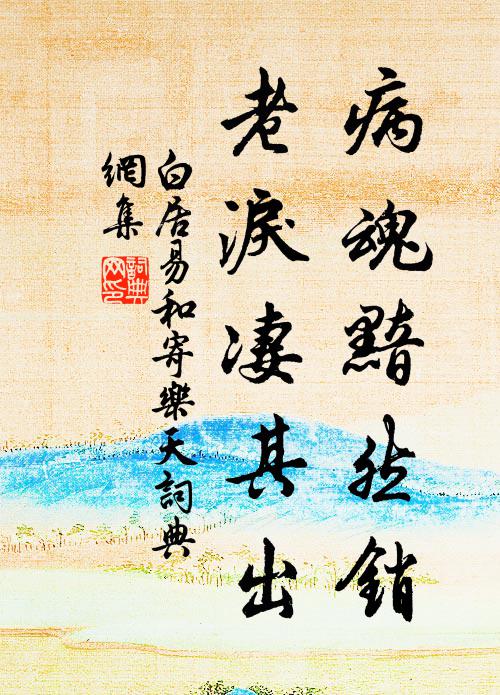 病魂黯然銷
老淚凄其出
白居易和寄樂天詞典
網集
詞典網印